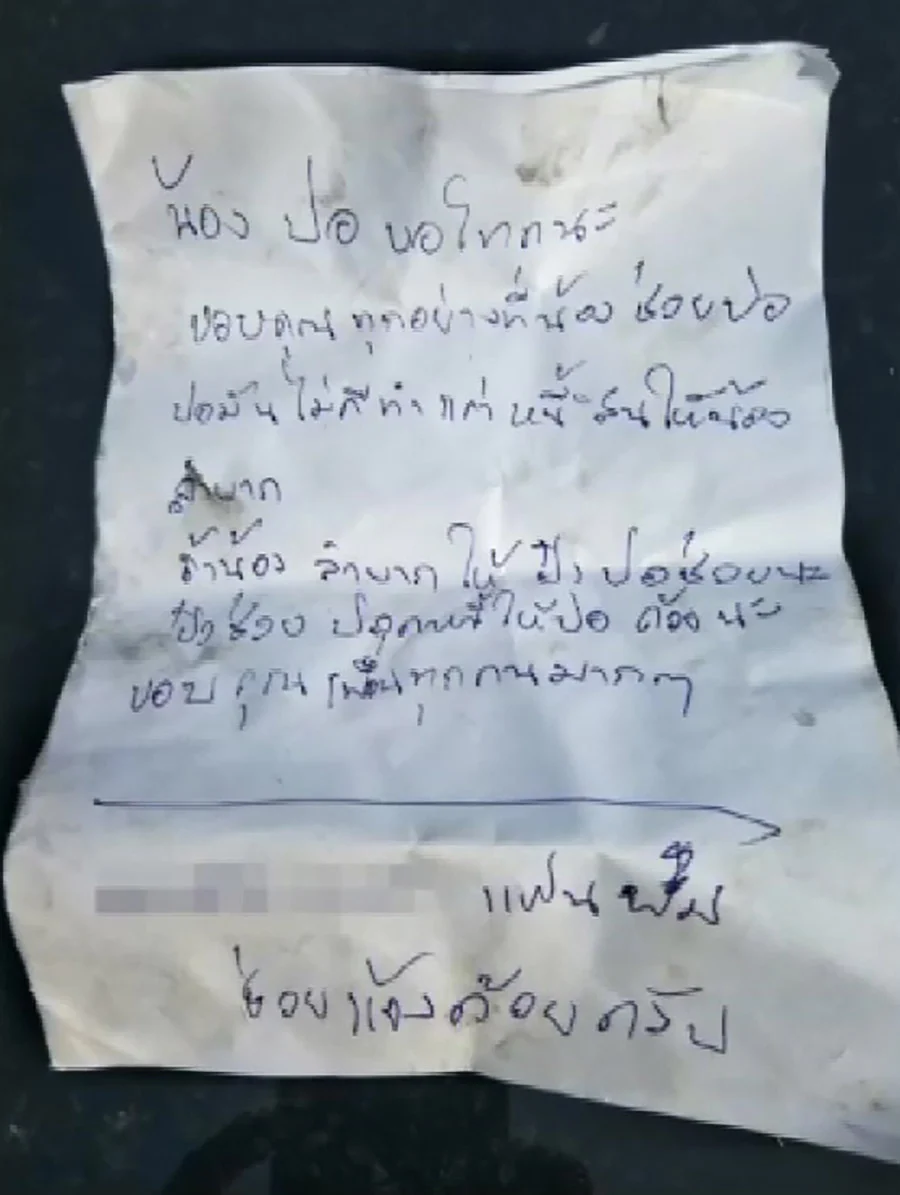 น้อง ป่อ ขอโทดนะ
ขอบคุณ ทุกอย่างที่น้อง ช่วยป่อ
ป่อมันไม่ดีทำแต่ หนี้สินให้น้อง
ลำบาก
ถ้าน้อง ลำบาก ให้ ช่วยนะ
ช่วย ให้ป่อ ด้วย นะ
ขอบ คุณ เพื่อนทุกคนมากๆ
แฟน
ช่วยแจ้งด้วยครับ